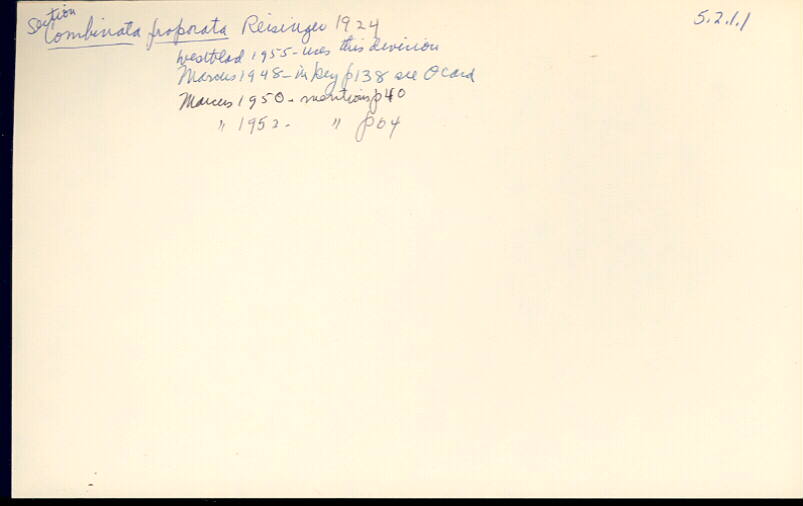 Section
Combinata proporata Reisinger 1924 5.2.1.1
Westblad 1955 - uses this division
Marcus 1948 - in key p138 see O card
Marcus 1950 - mentions p40
" 1952 - " p64